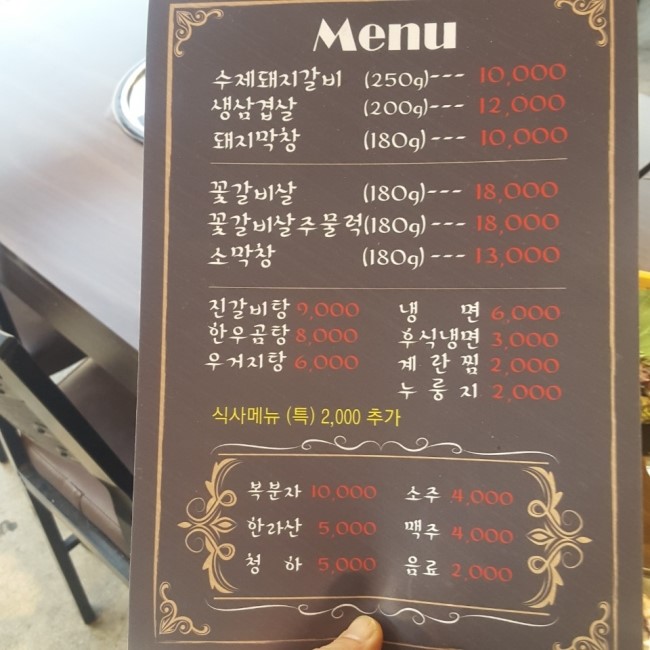 Menu
수제돼지갈비 (250g)--- 10,000
생삼겹살 (200g)--- 12,000
돼지막창 (180g)--- 10,000
꽃갈비살 (180g)--- 18,000
꽃갈비살주물럭(180g)--- 18,000
소막창 (180g)--- 13,000
진갈비탕 9,000 냉 면 6,000
한우곰탕 8,000 후식냉면 3,000
우거지탕 6,000 계 란 찜 2,000
누 룽 지 2,000
식사메뉴 (특) 2,000 추가
복분자 10,000 소주 4,000
한라산 5,000 맥주 4,000
청 하 5,000 음료 2,000